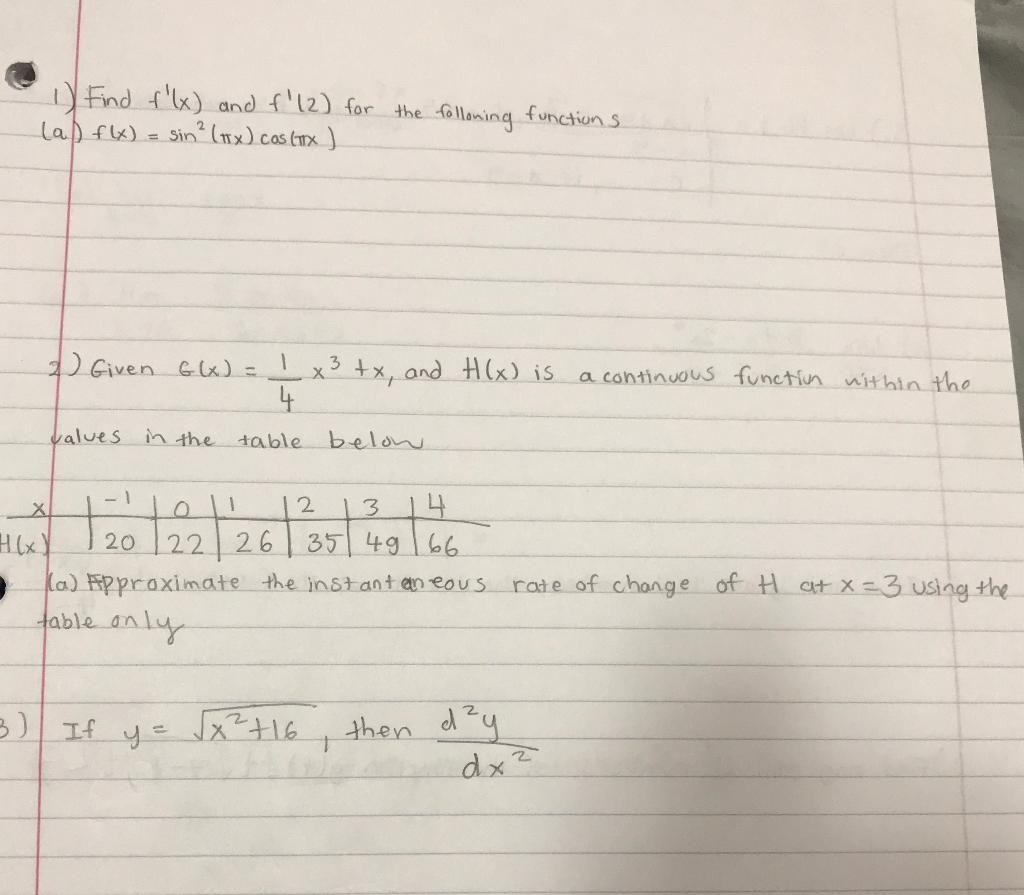 1) Find f'(x) and f'(2) for the following functions
(a) f(x) = sin²(πx) cos(πx)
2) Given G(x) = 1/4 x³ + x, and H(x) is a continuous function within the
values in the table below
x | -1 | 0 | 1 | 2 | 3 | 4
H(x) | 20 | 22 | 26 | 35 | 49 | 66
(a) Approximate the instantaneous rate of change of H at x = 3 using the
table only
3) If y = √(x²+16), then d²y/dx²